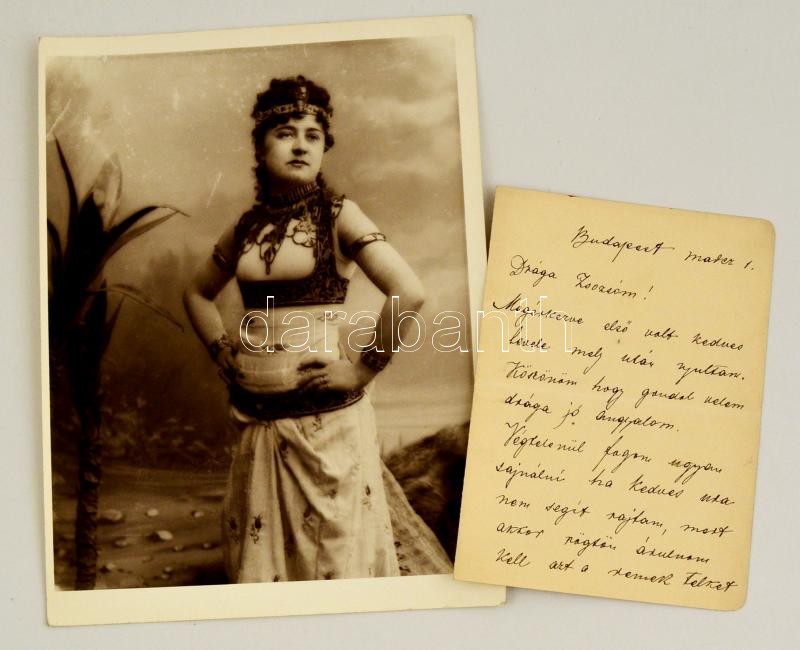 darabanth
Budapest marcz 1.
Drága Zsozsóm!
Megérkezve első volt kedves
levele mely után nyultam.
Köszönöm hogy gondol velem
drága jó Angyalom.
Végtelenül fogom ugyan
sajnálni ha kedves ura
nem segit rajtam, mert
akkor rögtön árulnom
kell azt a remek telket